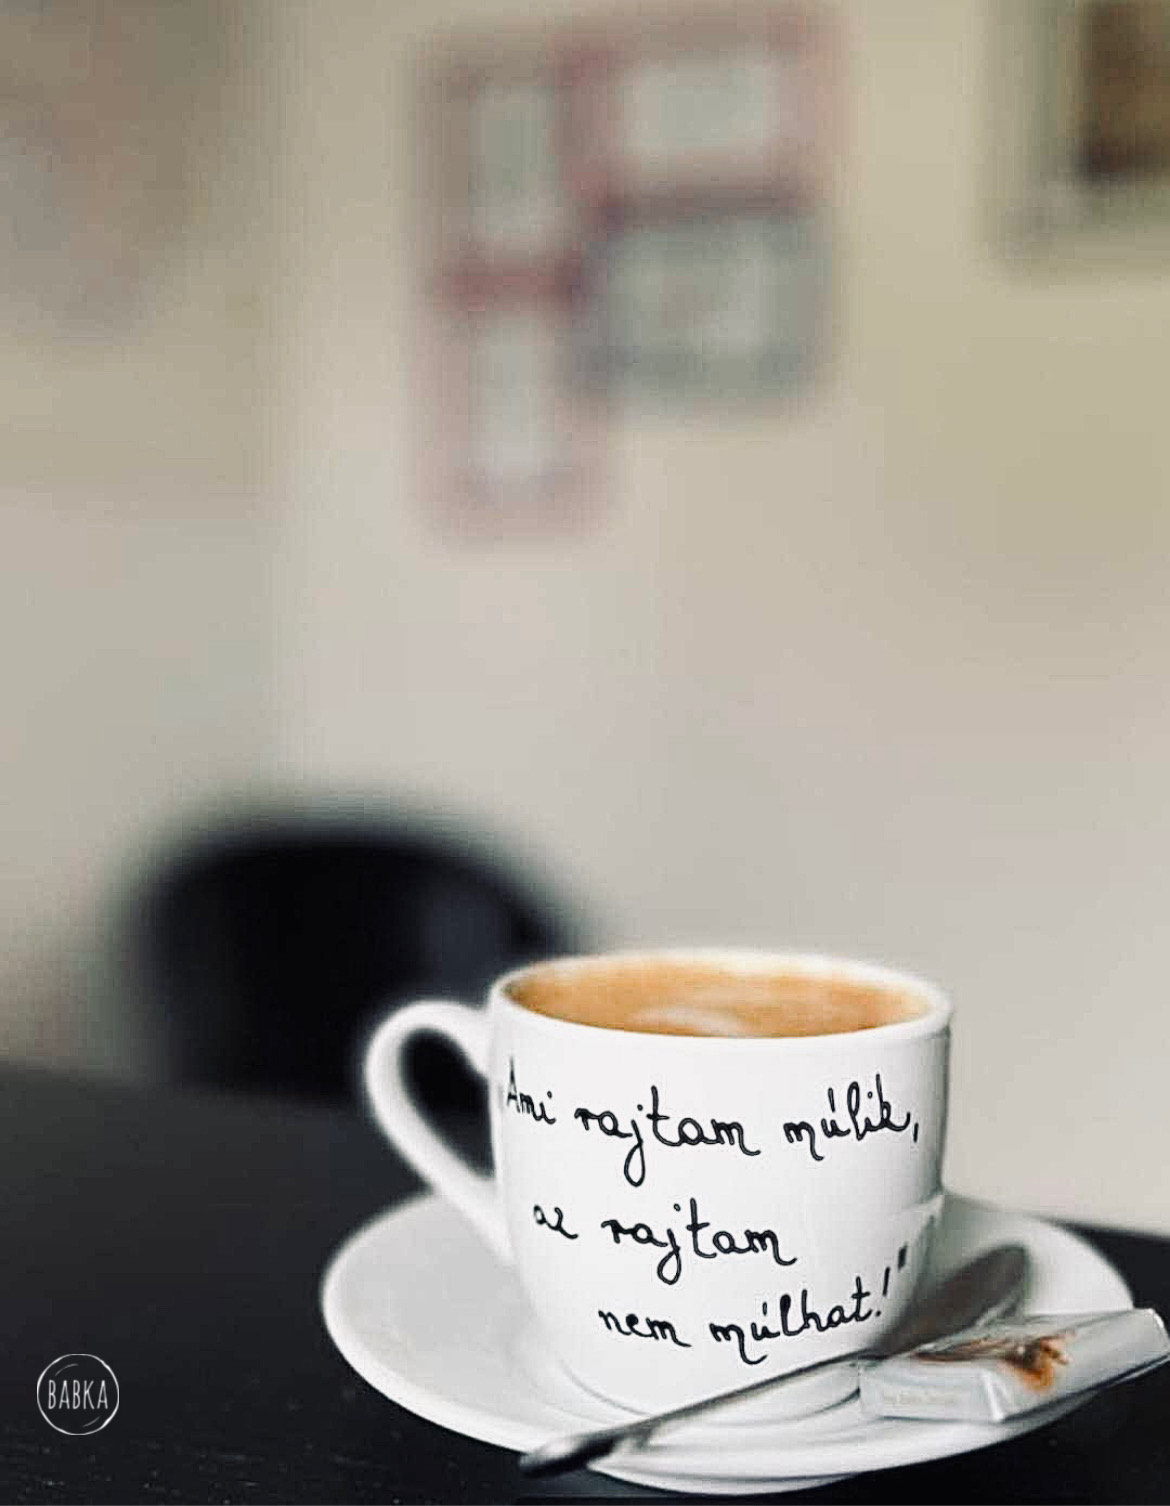 Ami rajtam múlik,
az rajtam
nem múlhat!"
BABKA